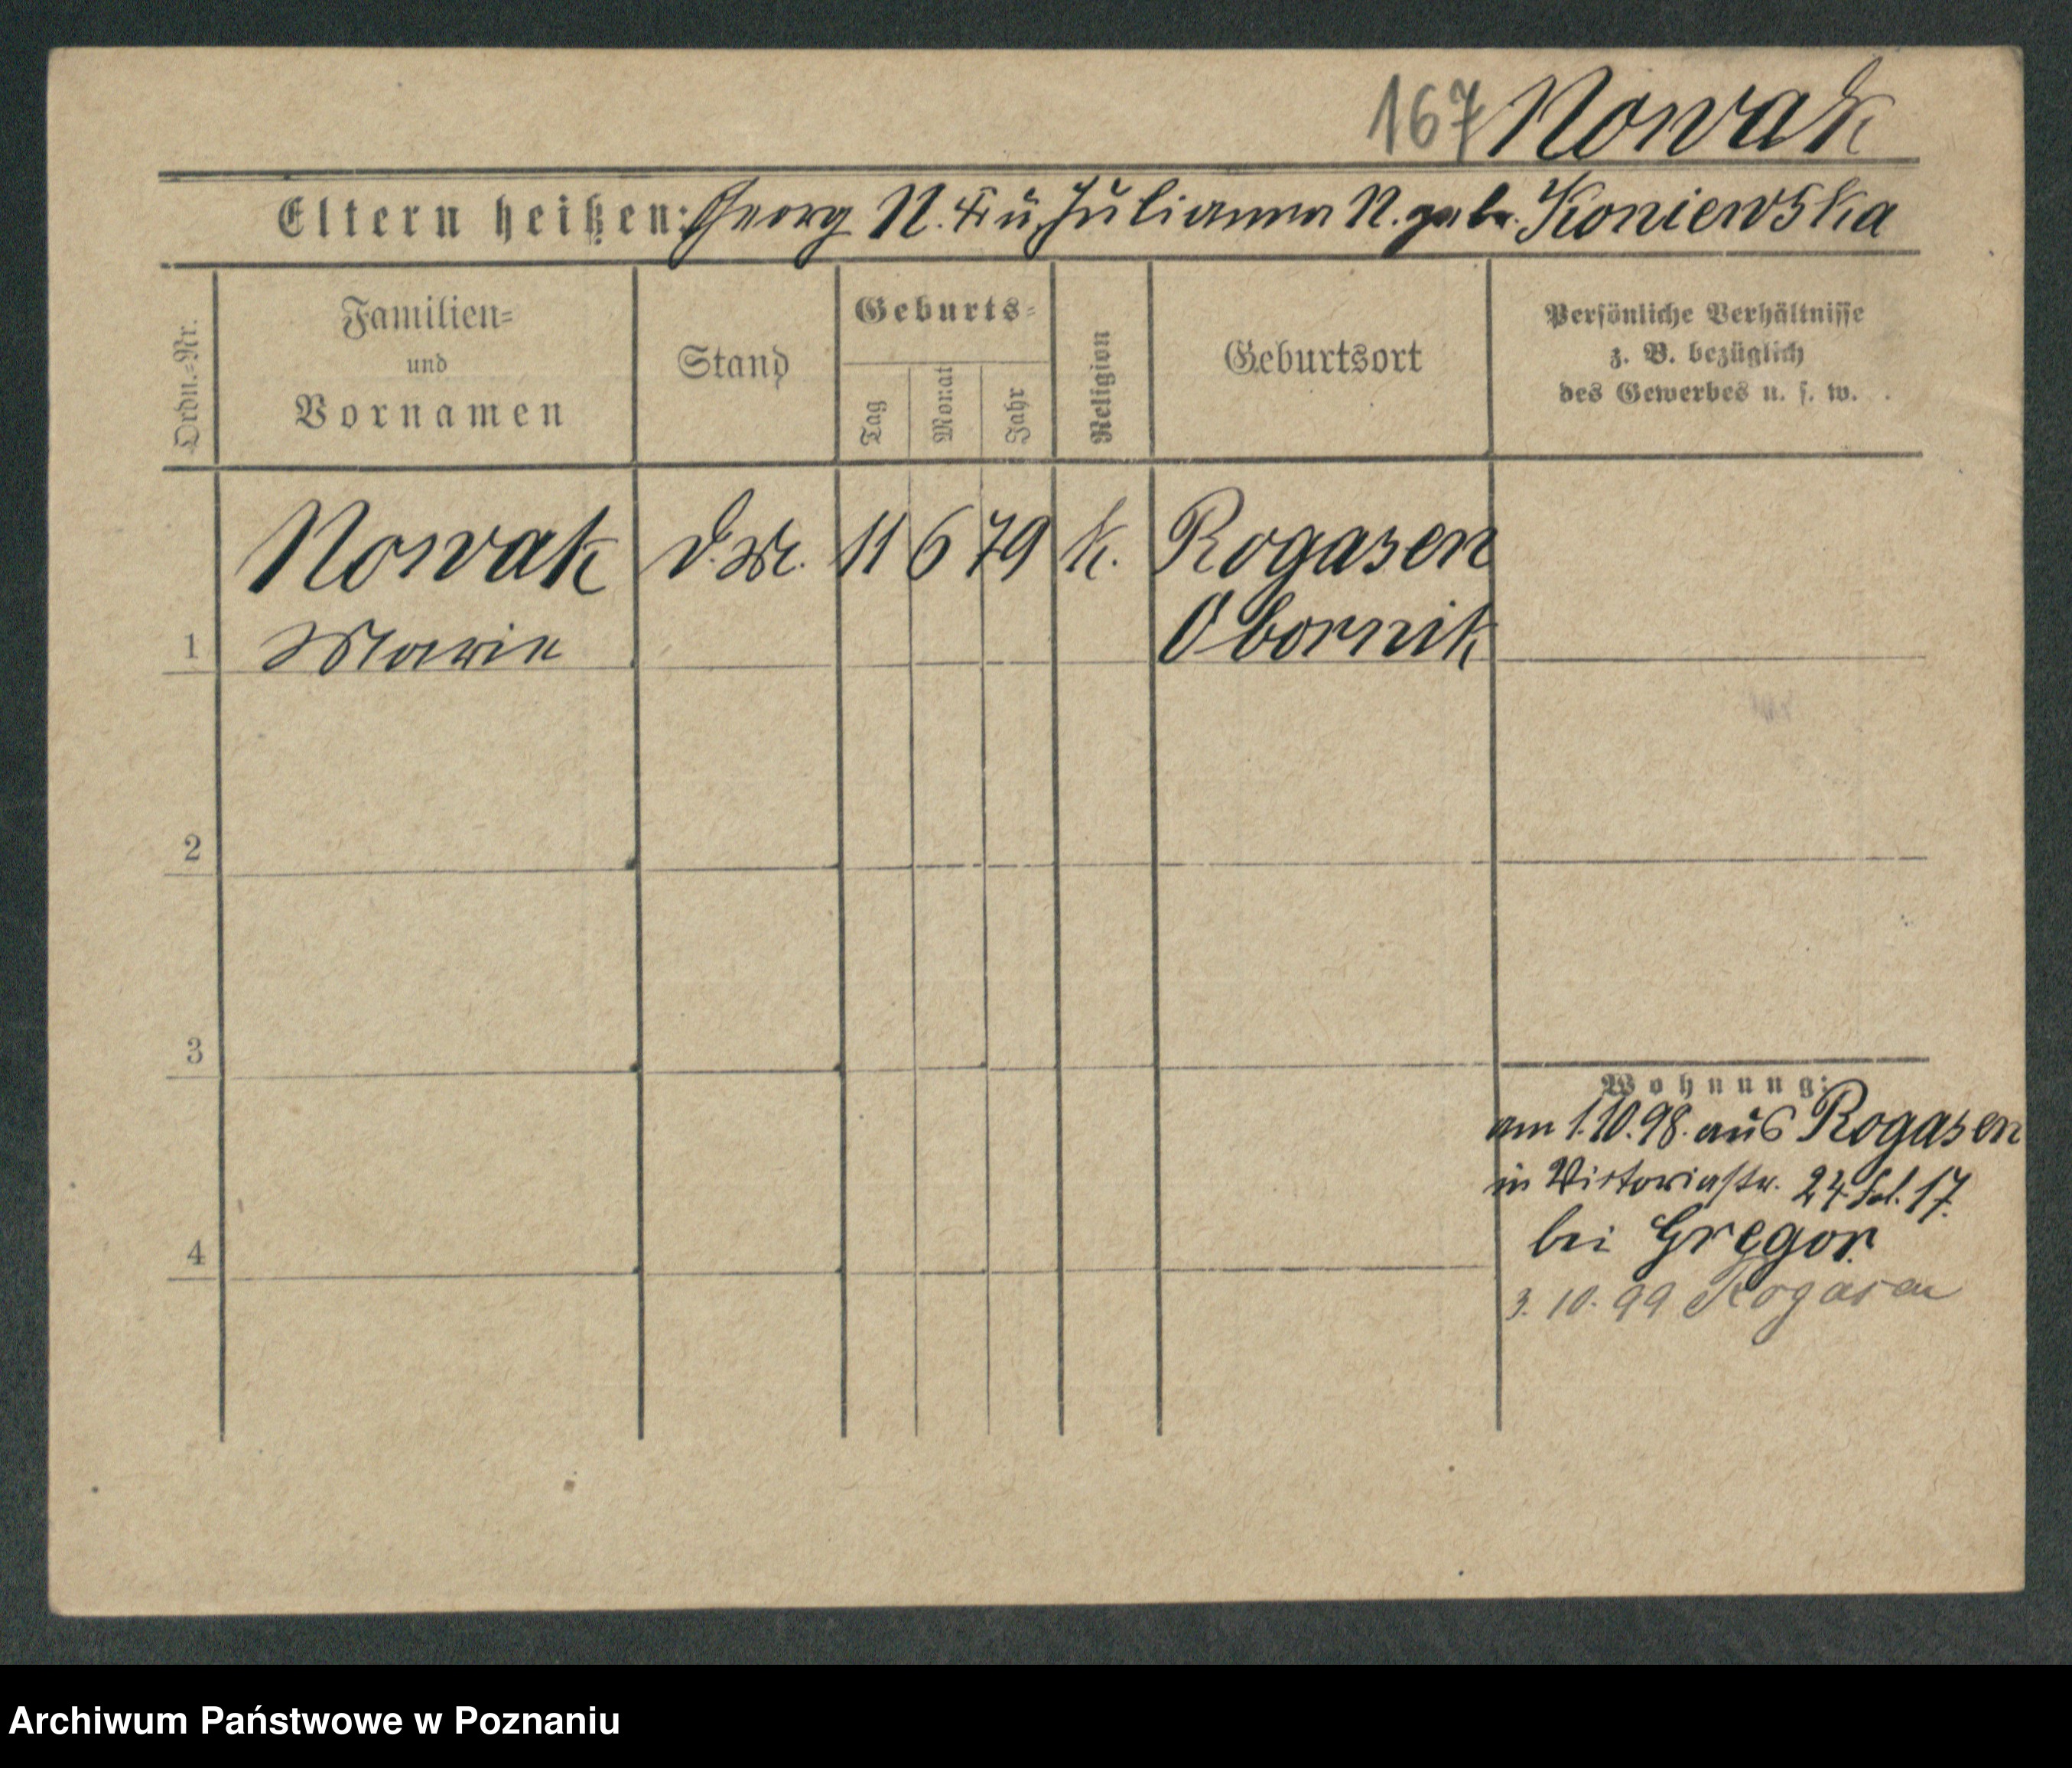 167 Nowak
Eltern heißen: Georg N. † u. Julianna N. geb. Koniewska
Ordn.=Nr.
Familien=
und
Vornamen
Stand
Geburts=
Tag
Monat
Jahr
Religion
Geburtsort
Persönliche Verhältnisse
z. B. bezüglich
des Gewerbes u. s. w.
Nowak D.M. 11 6 79 k. Rogasen
1 Marie Obornik
2
3
Wohnung:
am 1.10.98. aus Rogasen
in Victoriastr. 24 17.
4 bei Gregor.
3. 10. 99 Rogasen
Archiwum Państwowe w Poznaniu